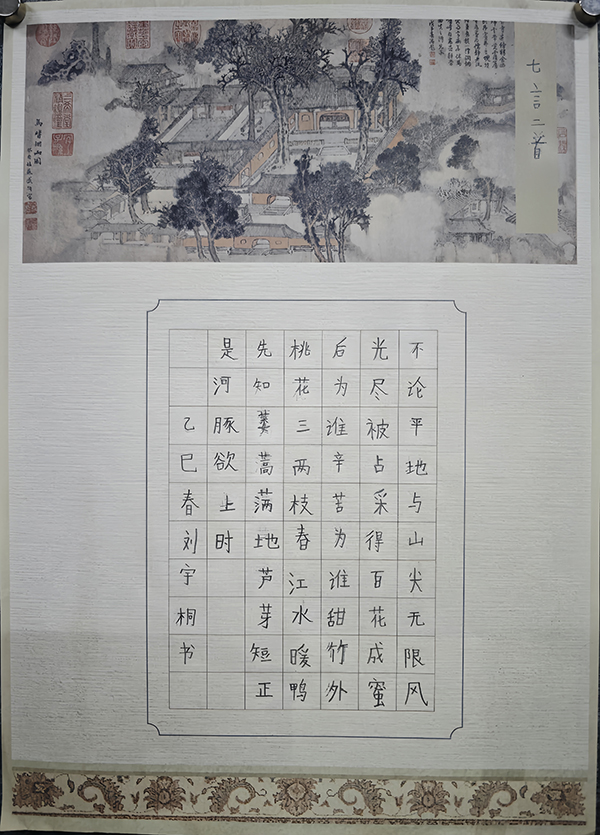 七言二首
不论平地与山尖无限风
光尽被占采得百花成蜜
后为谁辛苦为谁甜竹外
桃花三两枝春江水暖鸭
先知蒌蒿满地芦芽短正
是河豚欲上时
乙巳春刘宇桐书